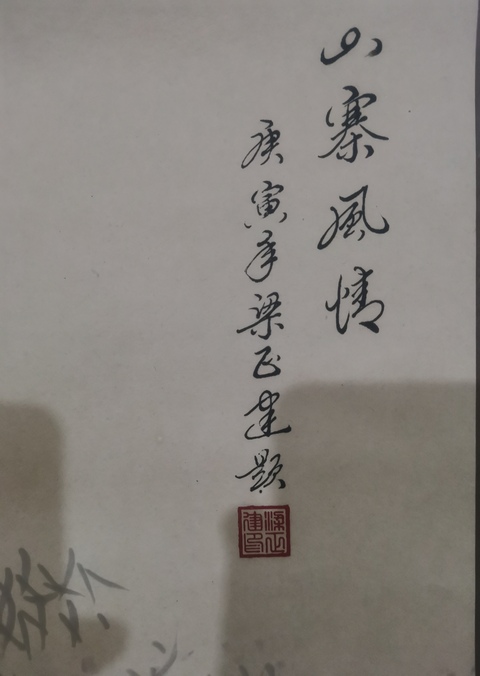 山寨風情
庚寅年梁正建题
梁正建印